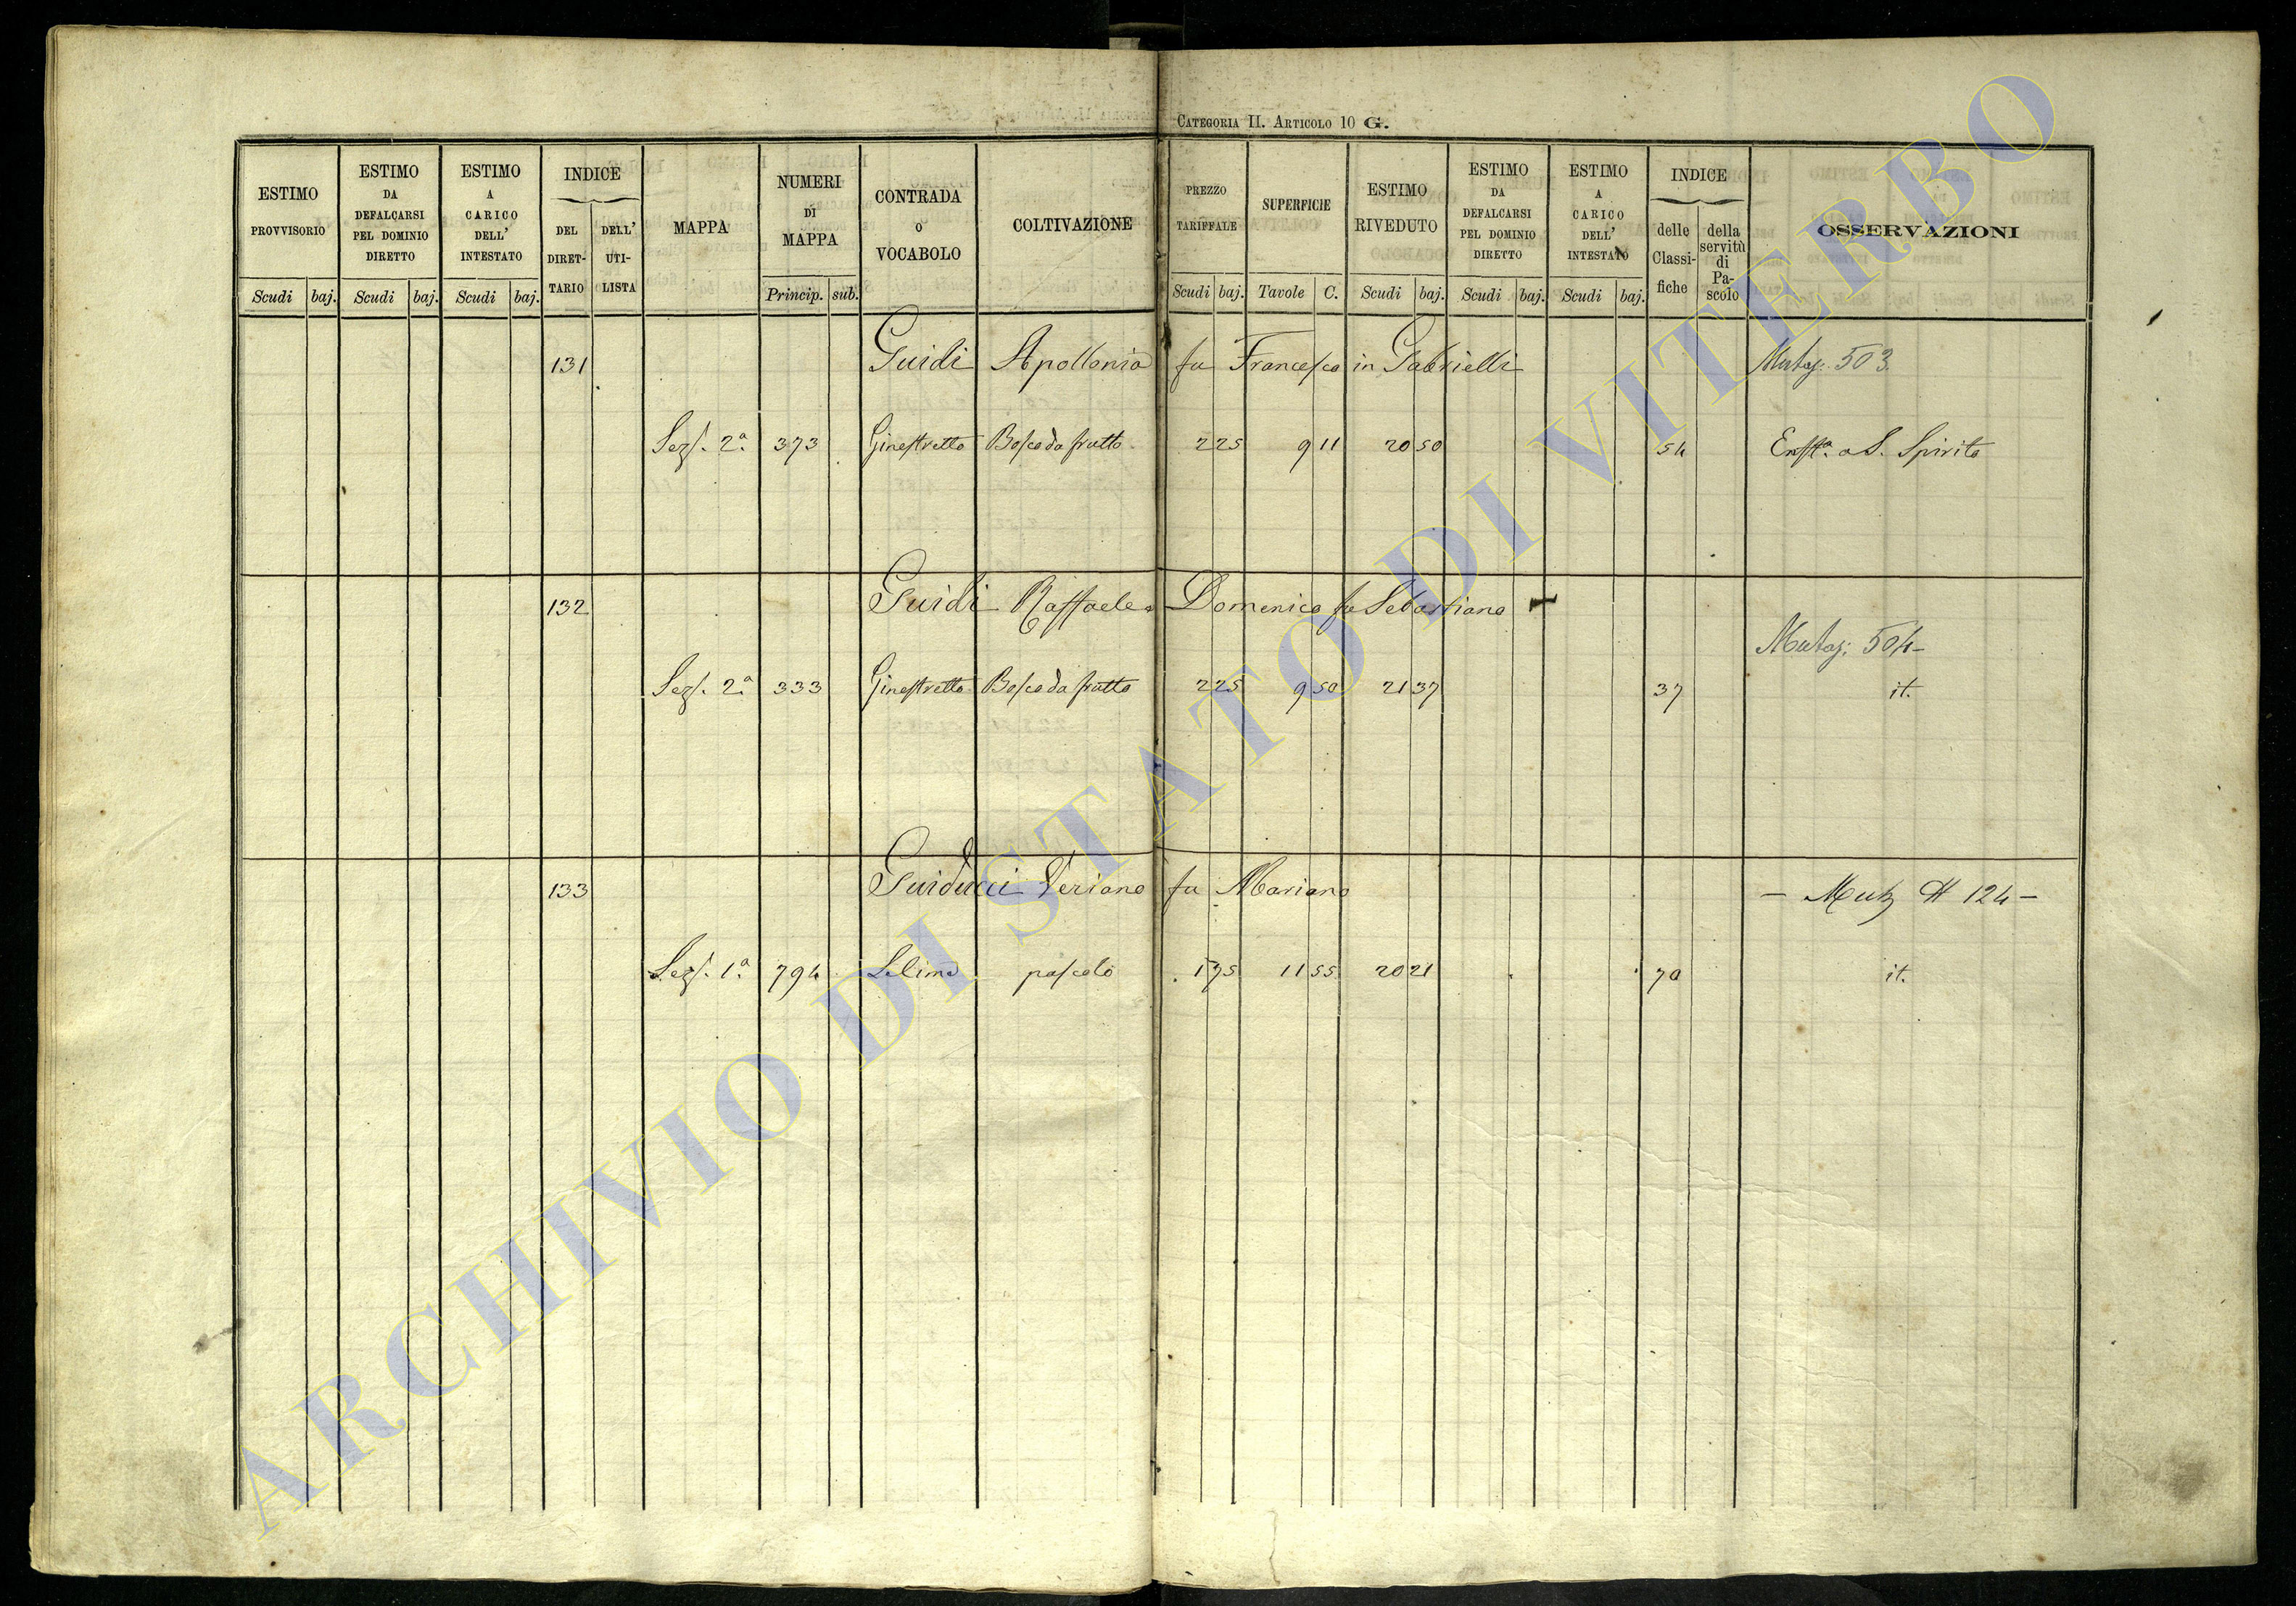 CATEGORIA II. ARTICOLO 10 G.
ESTIMO PROVVISORIO Scudi baj.
ESTIMO DA DEFALCARSI PEL DOMINIO DIRETTO Scudi baj.
ESTIMO A CARICO DELL' INTESTATO Scudi baj.
INDICE DEL DIRET-TARIO DELL' UTI-LISTA
MAPPA
NUMERI DI MAPPA Princip. sub.
CONTRADA O VOCABOLO
COLTIVAZIONE
PREZZO TARIFFALE Scudi baj.
SUPERFICIE Tavole C.
ESTIMO RIVEDUTO Scudi baj.
ESTIMO DA DEFALCARSI PEL DOMINIO DIRETTO Scudi baj.
ESTIMO A CARICO DELL' INTESTATO Scudi baj.
INDICE delle Classi-fiche della servitù di Pa-scolo
OSSERVAZIONI
131 Guidi Apollonia fu Francesco in Gabrielli Mutaz: 503
Sez. 2ª 373 Ginestretto Bosco da frutto 2 25 9 11 20 50 54 Enfta a S. Spirito
132 Guidi Raffaele Domenico fu Sebastiano
Mutaz: 504
Sez. 2ª 333 Ginestretto Bosco da frutto 2 25 9 50 21 37 37 it.
133 Guiducci Veriano fu Mariano – Mutz # 124 –
Sez. 1ª 794 Selime pascolo 1 75 11 55 20 21 70 it.
ARCHIVIO DI STATO DI VITERBO